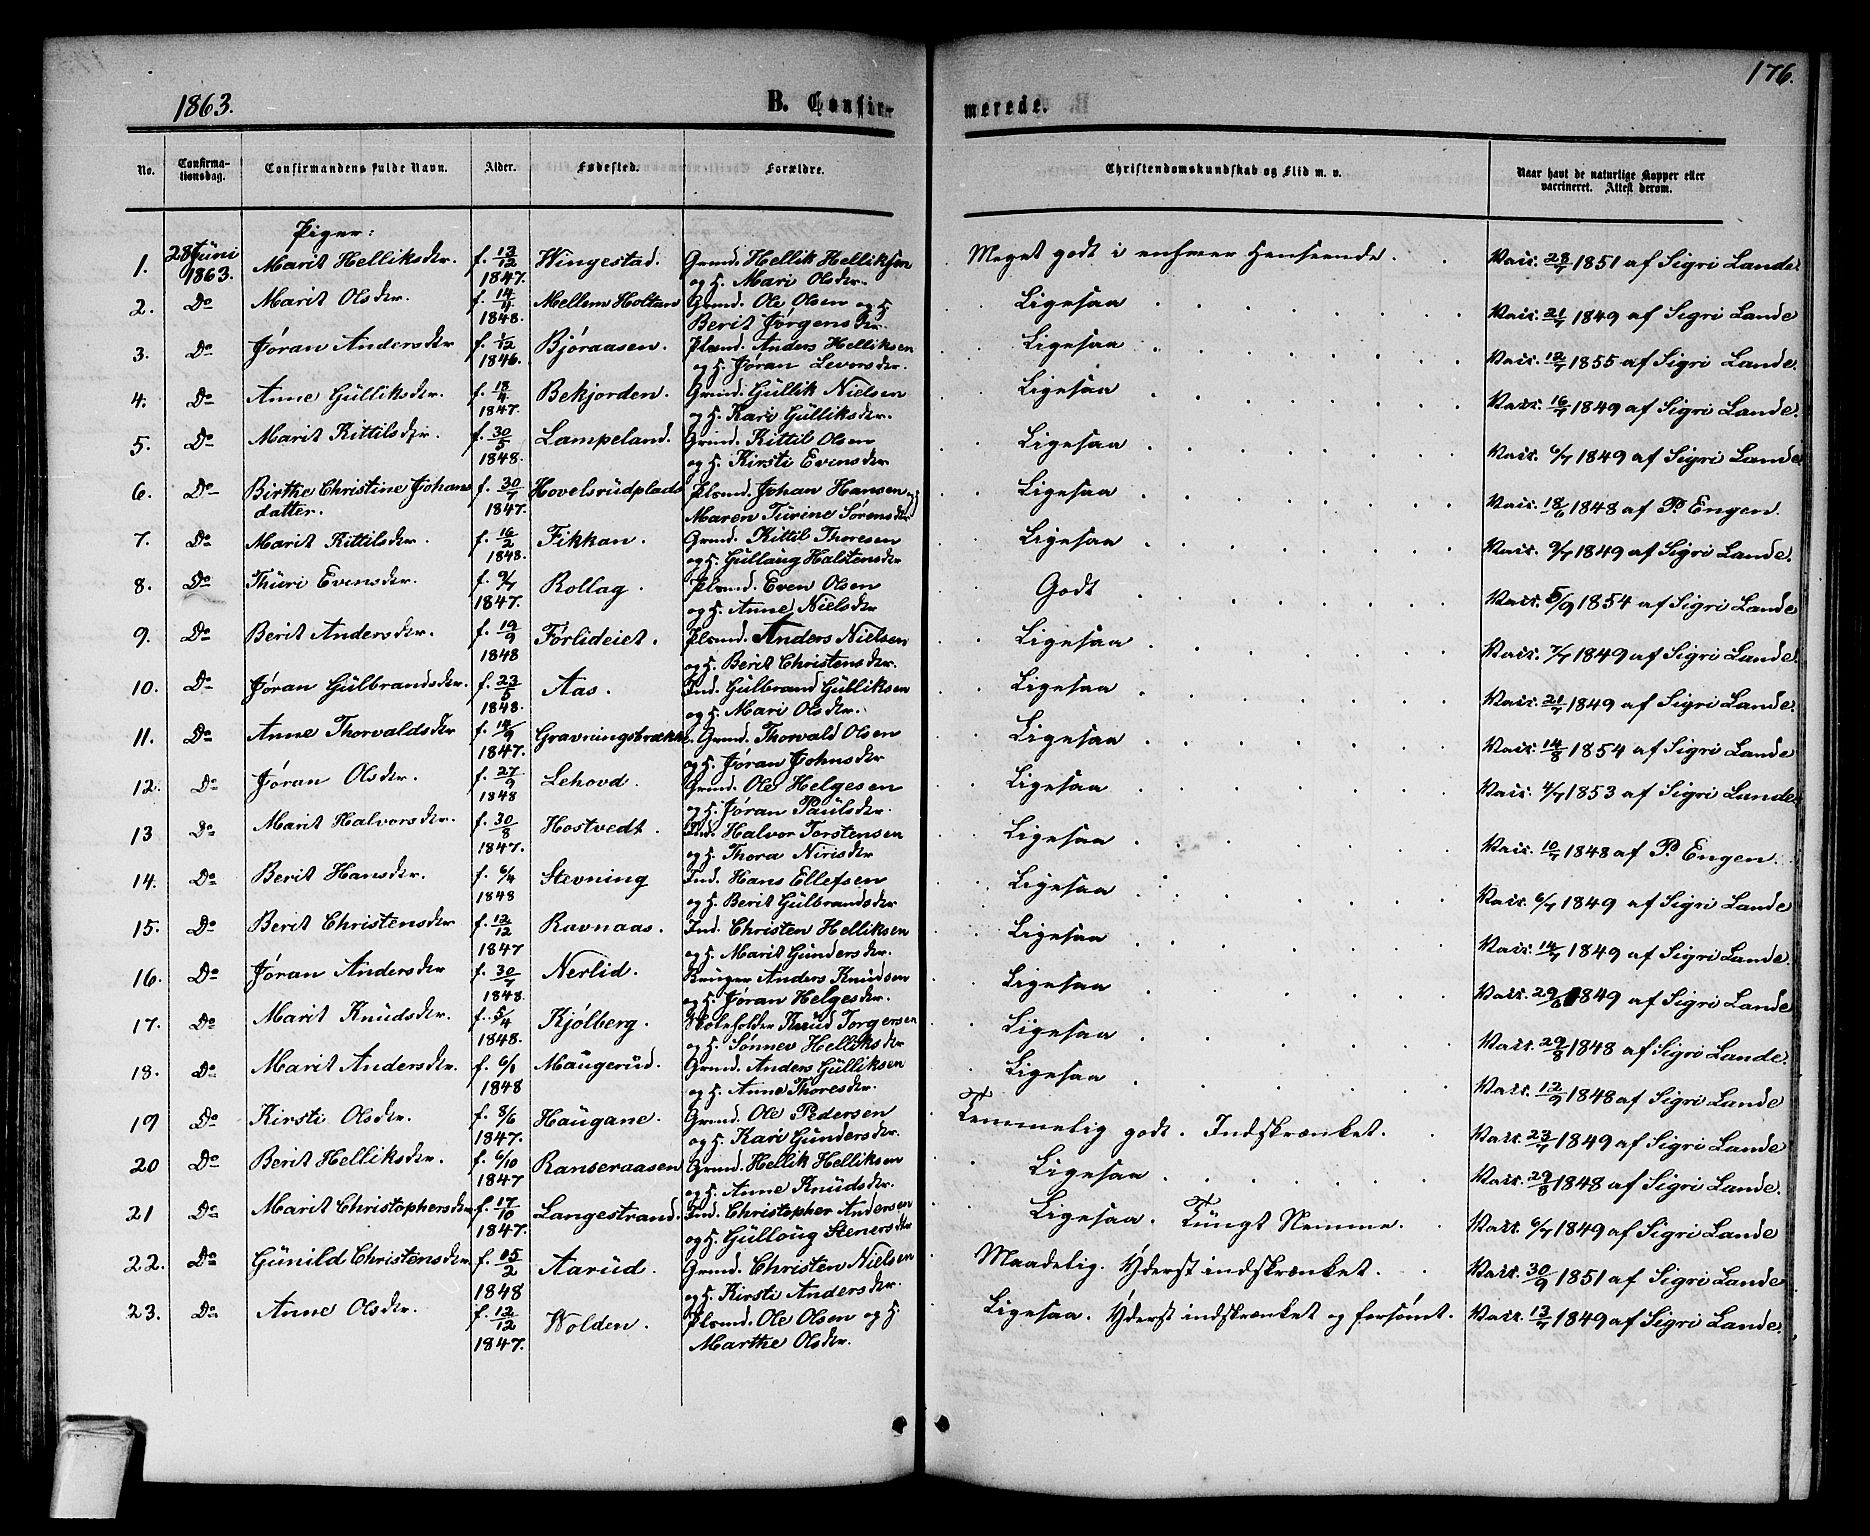 176.
1863. B. Confirmerede.
No. Confirmationsdag. Confirmandens fulde Navn. Alder. Fødested. Forældre. Christendomskundskab og Flid m. v. Naar havt de naturlige Kopper eller vaccineret. Attest derom.
Piger:
1. 28 Juni 1863. Marit Helliksdtr. f. 13/12 1847. Wingestad. Grmd. Hellik Helliksen og H. Mari Olsdtr. Meget godt i enhver Henseende. Vacc. 28/7 1851 af Sigri Lande.
2. Do Marit Olsdtr. f. 14/4 1848. Mellem Holtan Grmd. Ole Olsen og H Berit Jørgensdtr. Ligesaa Vacc. 21/7 1849 af Sigri Lande
3. Do Jøran Andersdtr f. 1/12 1846. Bjøraasen. Plsmd. Anders Helliksen og H. Jøran Leversdtr. Ligesaa Vacc. 12/7 1855 af Sigri Lande.
4. Do Anne Gulliksdtr. f. 18/4 1847. Bekjorden. Grmd. Gullik Nielsen og H. Kari Gulliksdtr. Ligesaa Vacc. 16/7 1849 af Sigri Lande.
5. Do Marit Kittilsdtr. f. 30/5 1848. Lampeland. Grmd. Kittil Olsen og H. Kirsti Evensdtr Ligesaa Vacc. 6/7 1849 af Sigri Lande
6. Do Birthe Christine Johansdatter. f. 30/7 1847. Hovelsrudplads Plsmd. Johan Hansen og Maren Turine Sørensdtr Ligesaa Vacc. 18/6 1848 af P. Engen.
7. Do Marit Kittilsdtr. f. 16/2 1848. Fikkan. Grmd. Kittil Thoresen og H. Gullaug Halstensdtr Ligesaa Vacc. 9/7 1849 af Sigri Lande.
8. Do Thuri Evensdtr. f. 9/7 1847. Rollag. Plsmd. Even Olsen og H. Anne Nielsdtr Godt Vacc. 5/9 1854 af Sigri Lande
9. Do Berit Andersdtr. f. 19/9 1848 Førlideiet. Plsmd. Anders Nielsen og H. Berit Christensdtr. Ligesaa Vacc. 7/7 1849 af Sigri Lande.
10. Do Jøran Gulbrandsdtr. f. 23/5 1848. Aas. Ind. Gulbrand Gulliksen og H. Mari Olsdtr. Ligesaa Vacc. 21/7 1849 af Sigri Lande.
11. Do Anne Thorvaldsdtr f. 14/9 1847. Gravningsbrække. Grmd. Thorvald Olsen og H. Jøran Johnsdtr Ligesaa Vacc. 14/8 1854 af Sigri Lande
12. Do Jøran Olsdtr. f. 27/9 1848 Lehovd. Grmd. Ole Helgesen og H. Jøran Paulsdtr. Ligesaa Vacc. 4/7 1853 af Sigri Lande
13 Do Marit Halvorsdtr. f. 30/8 1847. Hostvedt. Ind. Halvor Torstensen og H. Thora Nirisdtr Ligesaa Vacc. 10/7 1848 af P. Engen.
14. Do Berit Hansdtr. f. 6/4 1848 Stevning Ind. Hans Ellefsen og H. Berit Gulbrandsdtr Ligesaa Vacc. 6/7 1849 af Sigri Lande
15. Do Berit Christensdtr f. 12/12 1847 Ravnaas. Ind. Christen Helliksen og H. Marit Gundersdtr. Ligesaa Vacc. 14/7 1849 af Sigri Lande.
16. Do Jøran Andersdtr f. 30/7 1848. Nerlid. Bruger Anders Knudsen og H. Jøran Helgesdtr. Ligesaa Vacc. 29/8 1849 af Sigri Lande
17. Do Marit Knudsdtr. f. 5/4 1848. Kjølberg. Skoleholder Knud Torgersen og H. Sønnev Helliksdtr Ligesaa Vacc. 29/8 1848 af Sigri Lande.
18. Do Marit Andersdtr. f. 6/1 1848 Maugerud. Grmd. Anders Gulliksen og H. Anne Thoresdtr. Ligesaa Vacc. 12/9 1848 af Sigri Lande
19 Do Kirsti Olsdtr. f. 8/6 1847. Haugane. Grmd. Ole Pedersen og H. Kari Gundersdtr. Temmelig godt. Indskrænket. Vacc. 23/7 1849 af Sigri Lande
20 Do Berit Helliksdtr. f. 6/10 1847 Ranseraasen Grmd. Hellik Helliksen og H. Anne Knudsdtr. Ligesaa Vacc. 29/8 1848 af Sigri Lande.
21 Do Marit Christophersdtr f. 17/10 1847. Langestrand. Ind. Christopher Andersen og H. Gulloug Stenersdtr Ligesaa. Tungt Nemme. Vacc. 6/7 1849 af Sigri Lande
22. Do Gunild Christensdtr. f. 15/2 1848 Aarud. Grmd. Christen Nielsen og H. Kirsti Andersdtr. Maadelig. Yderst indskrænket. Vacc. 30/9 1851 af Sigri Lande
23. Do Anne Olsdtr. f. 12/12 1847. Wolden. Plsmd. Ole Olsen og H Marthe Olsdtr. Ligesaa. Yderst indskrænket og forsømt. Vacc. 13/7 1849 af Sigri Lande.